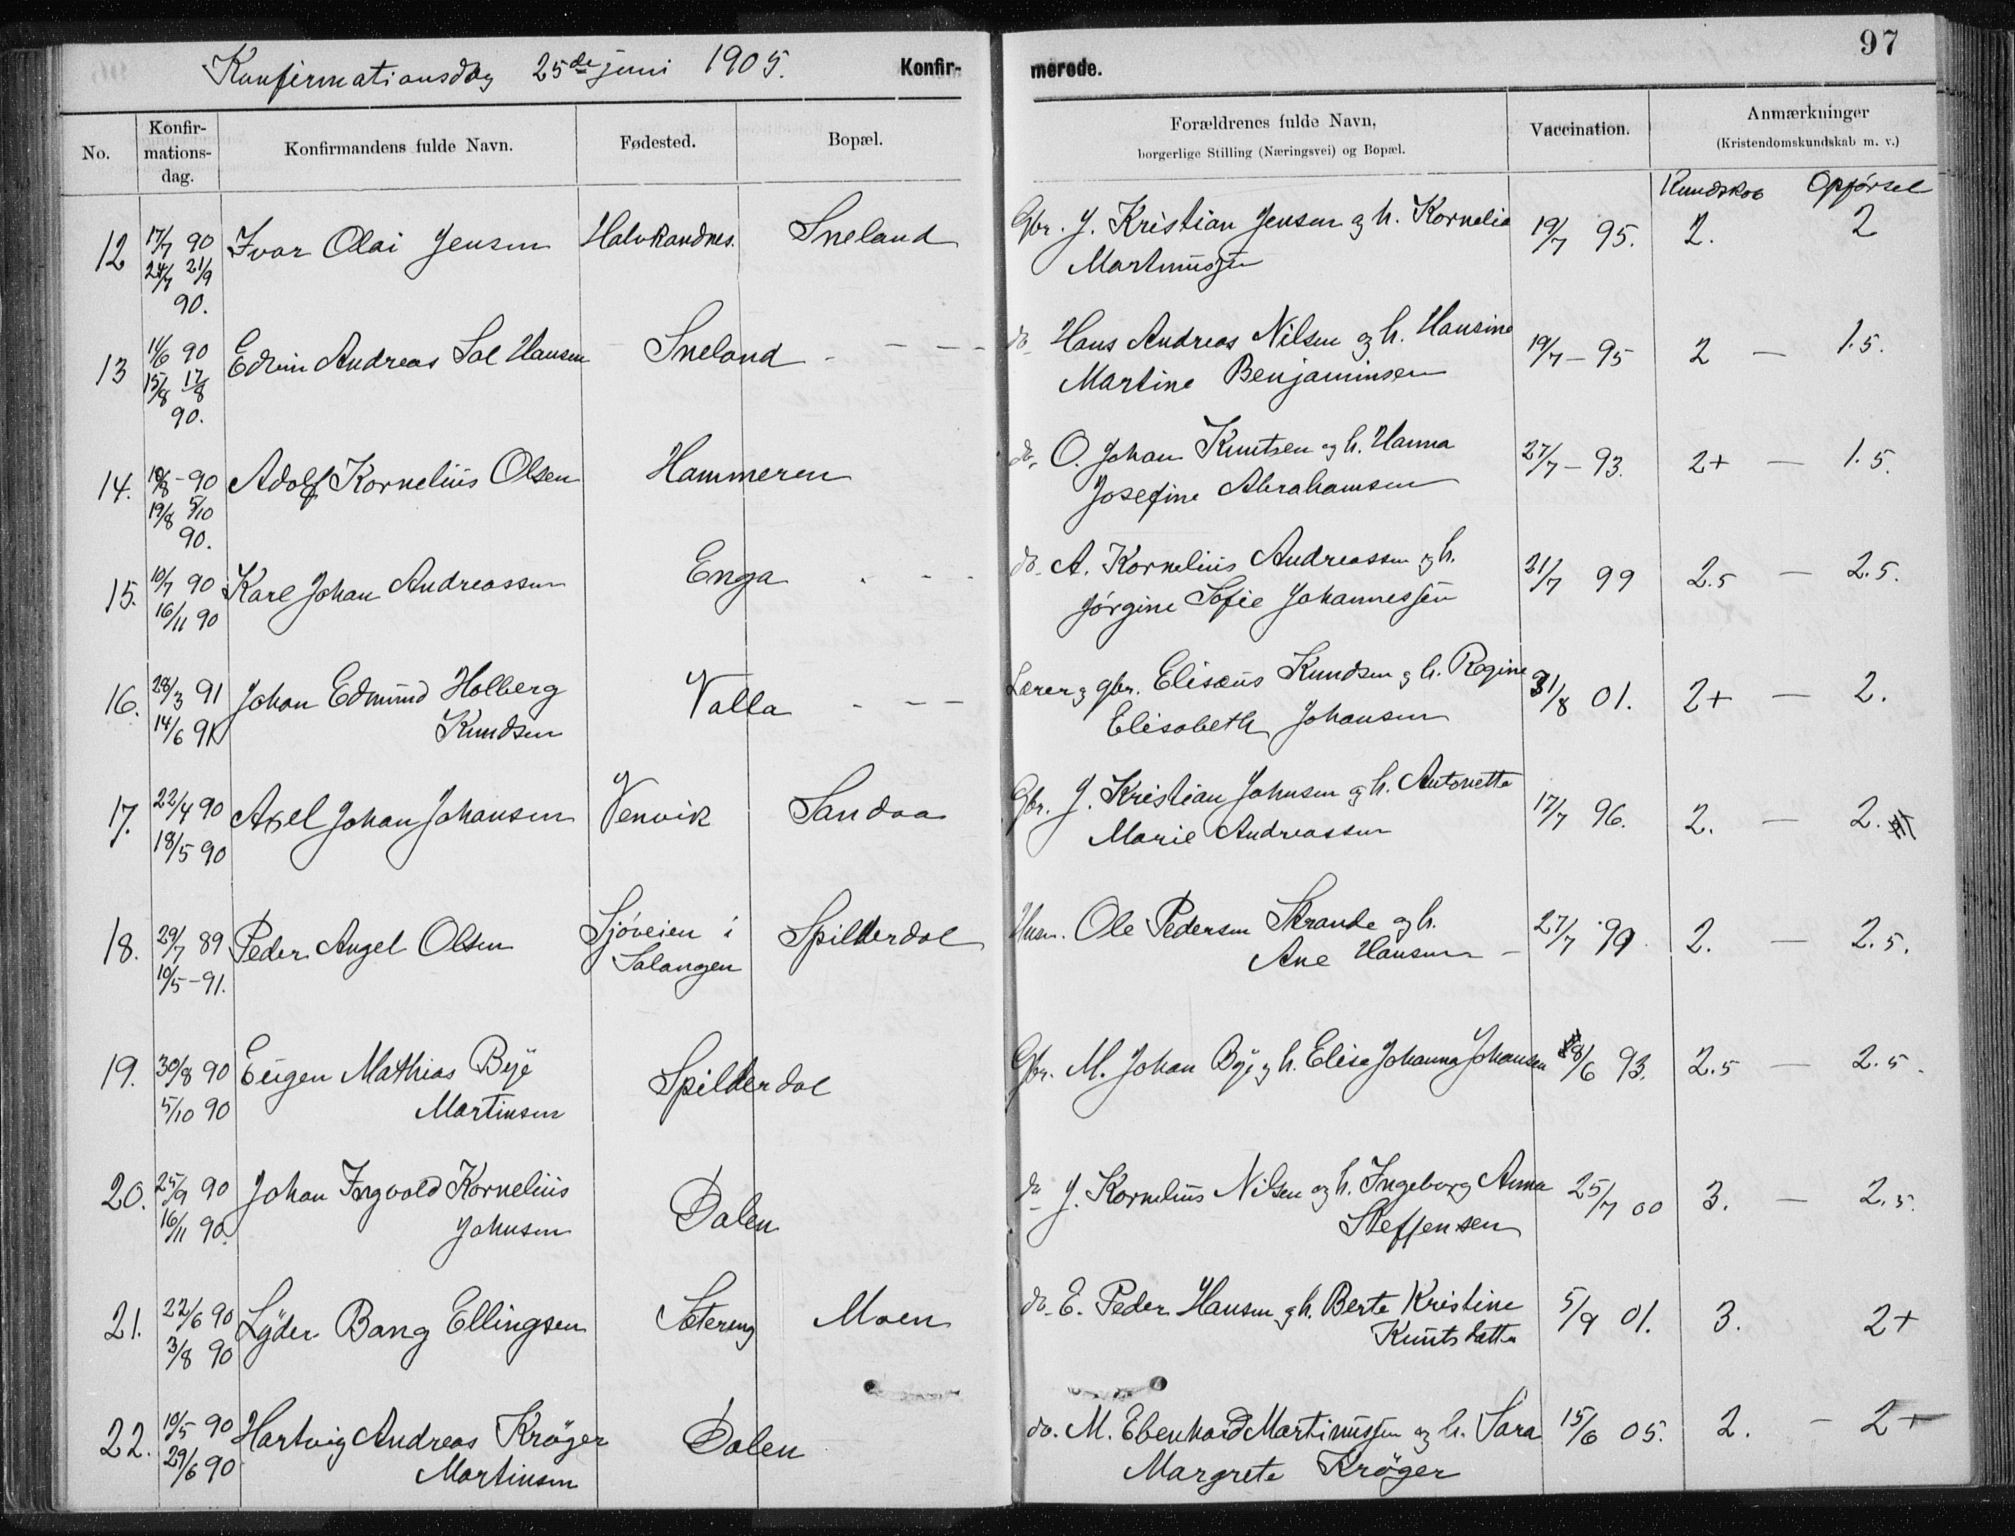 Konfirmationsdag 25de juni 1905. Konfir- merede. 97
No. Konfir-mations-dag. Konfirmandens fulde Navn. Fødested. Bopæl. Forældrenes fulde Navn, borgerlige Stilling (Næringsvei) og Bopæl. Vaccination. Anmærkninger (Kristendomskundskab m. v.)
Kundskab Opførsel
12 17/7 90 Ivar Olai Jensen Halvrandnes. Sneland Gbr. J. Kristian Jensen og h. Kornelia 19/7 95. 2. 2
24/7 21/9 Martinussen
90.
13 11/6 90 Edvin Andreas Sol Hansen Sneland - - - - do Hans Andreas Nilsen og h. Hansine 19/7 - 95 2 — 1.5.
15/8 17/8 Martine Benjaminsen
90.
14. 10/8 - 90 Adolf Kornelius Olsen Hammeren do. O. Johan Knutsen og h. Hanna 27/7 - 93. 2+ — 1.5.
19/8 5/10 Josefine Abrahamsen
90.
15. 10/7 90 Karl Johan Andreassen Enga . - - do. A. Kornelius Andreassen og h. 21/7 99 2.5 — 2.5.
16/11 90 Jørgine Sofie Johannessen
16. 28/3 91 Johan Edmund Holberg Valla - - - Lærer og gbr. Elisæus Knudsen og h. Regine 31/8 01. 2+ — 2.
14/6 91 Knudsen Elisabeth Johansen
17. 22/4 90 Axel Johan Johansen Venvik Sandaa Gbr. J. Kristian Johnsen og h. Antonette 17/7 96. 2. — 2.
18/5 90 Marie Andreassen
18. 29/7 89 Peder Angel Olsen Sjøveien i Spilderdal Husm. Ole Pedersen Strande og h. 27/7 99 2. — 2.5.
10/5 - 91. Salangen Ane Hansen -
19. 30/8 90 Eugen Mathias Bye Spilderdal Gbr. M. Johan Bye og h. Elise Johanna Johansen 28/6 93. 2.5 — 2.5.
5/10 90 Martinsen
20. 25/9 90 Johan Ingvald Kornelius Dalen do J. Kornelius Nilsen og h. Ingeborg Anna 25/7 00 3. — 2.5.
16/11 90. Johnsen Steffensen
21. 22/6 90 Lyder Bang Ellingsen Sætereng Moen do. E. Peder Hansen og h. Berte Kristine 5/9 01. 3. 2+
3/8 90 Knutsdatter
22. 10/5 90 Hartvig Andreas Krøger Dalen do. M. Ebenhard Martinussen og h. Sara 15/6 05. 2. — 2+
29/6 90 Martinsen Margrete Krøger